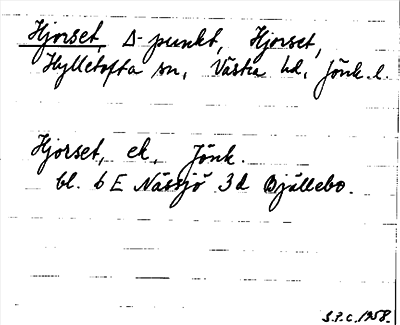 Hjorset, Δ-punkt, Hjorset,
Hylletofta sn, Västra hd, Jönk. l.
Hjorset, ek, Jönk.
bl. 6 E Nässjö 3d Bjällebo.
S.P.C. 1958.